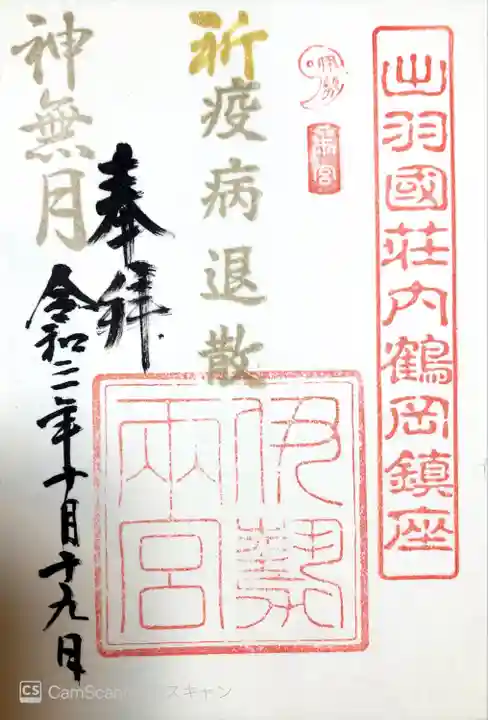 出羽國荘内鶴岡鎮座
伊勢
両宮
祈疫病退散
伊勢
両宮
奉拝
神無月
令和二年十月十九日
CS CamScan
スキャン